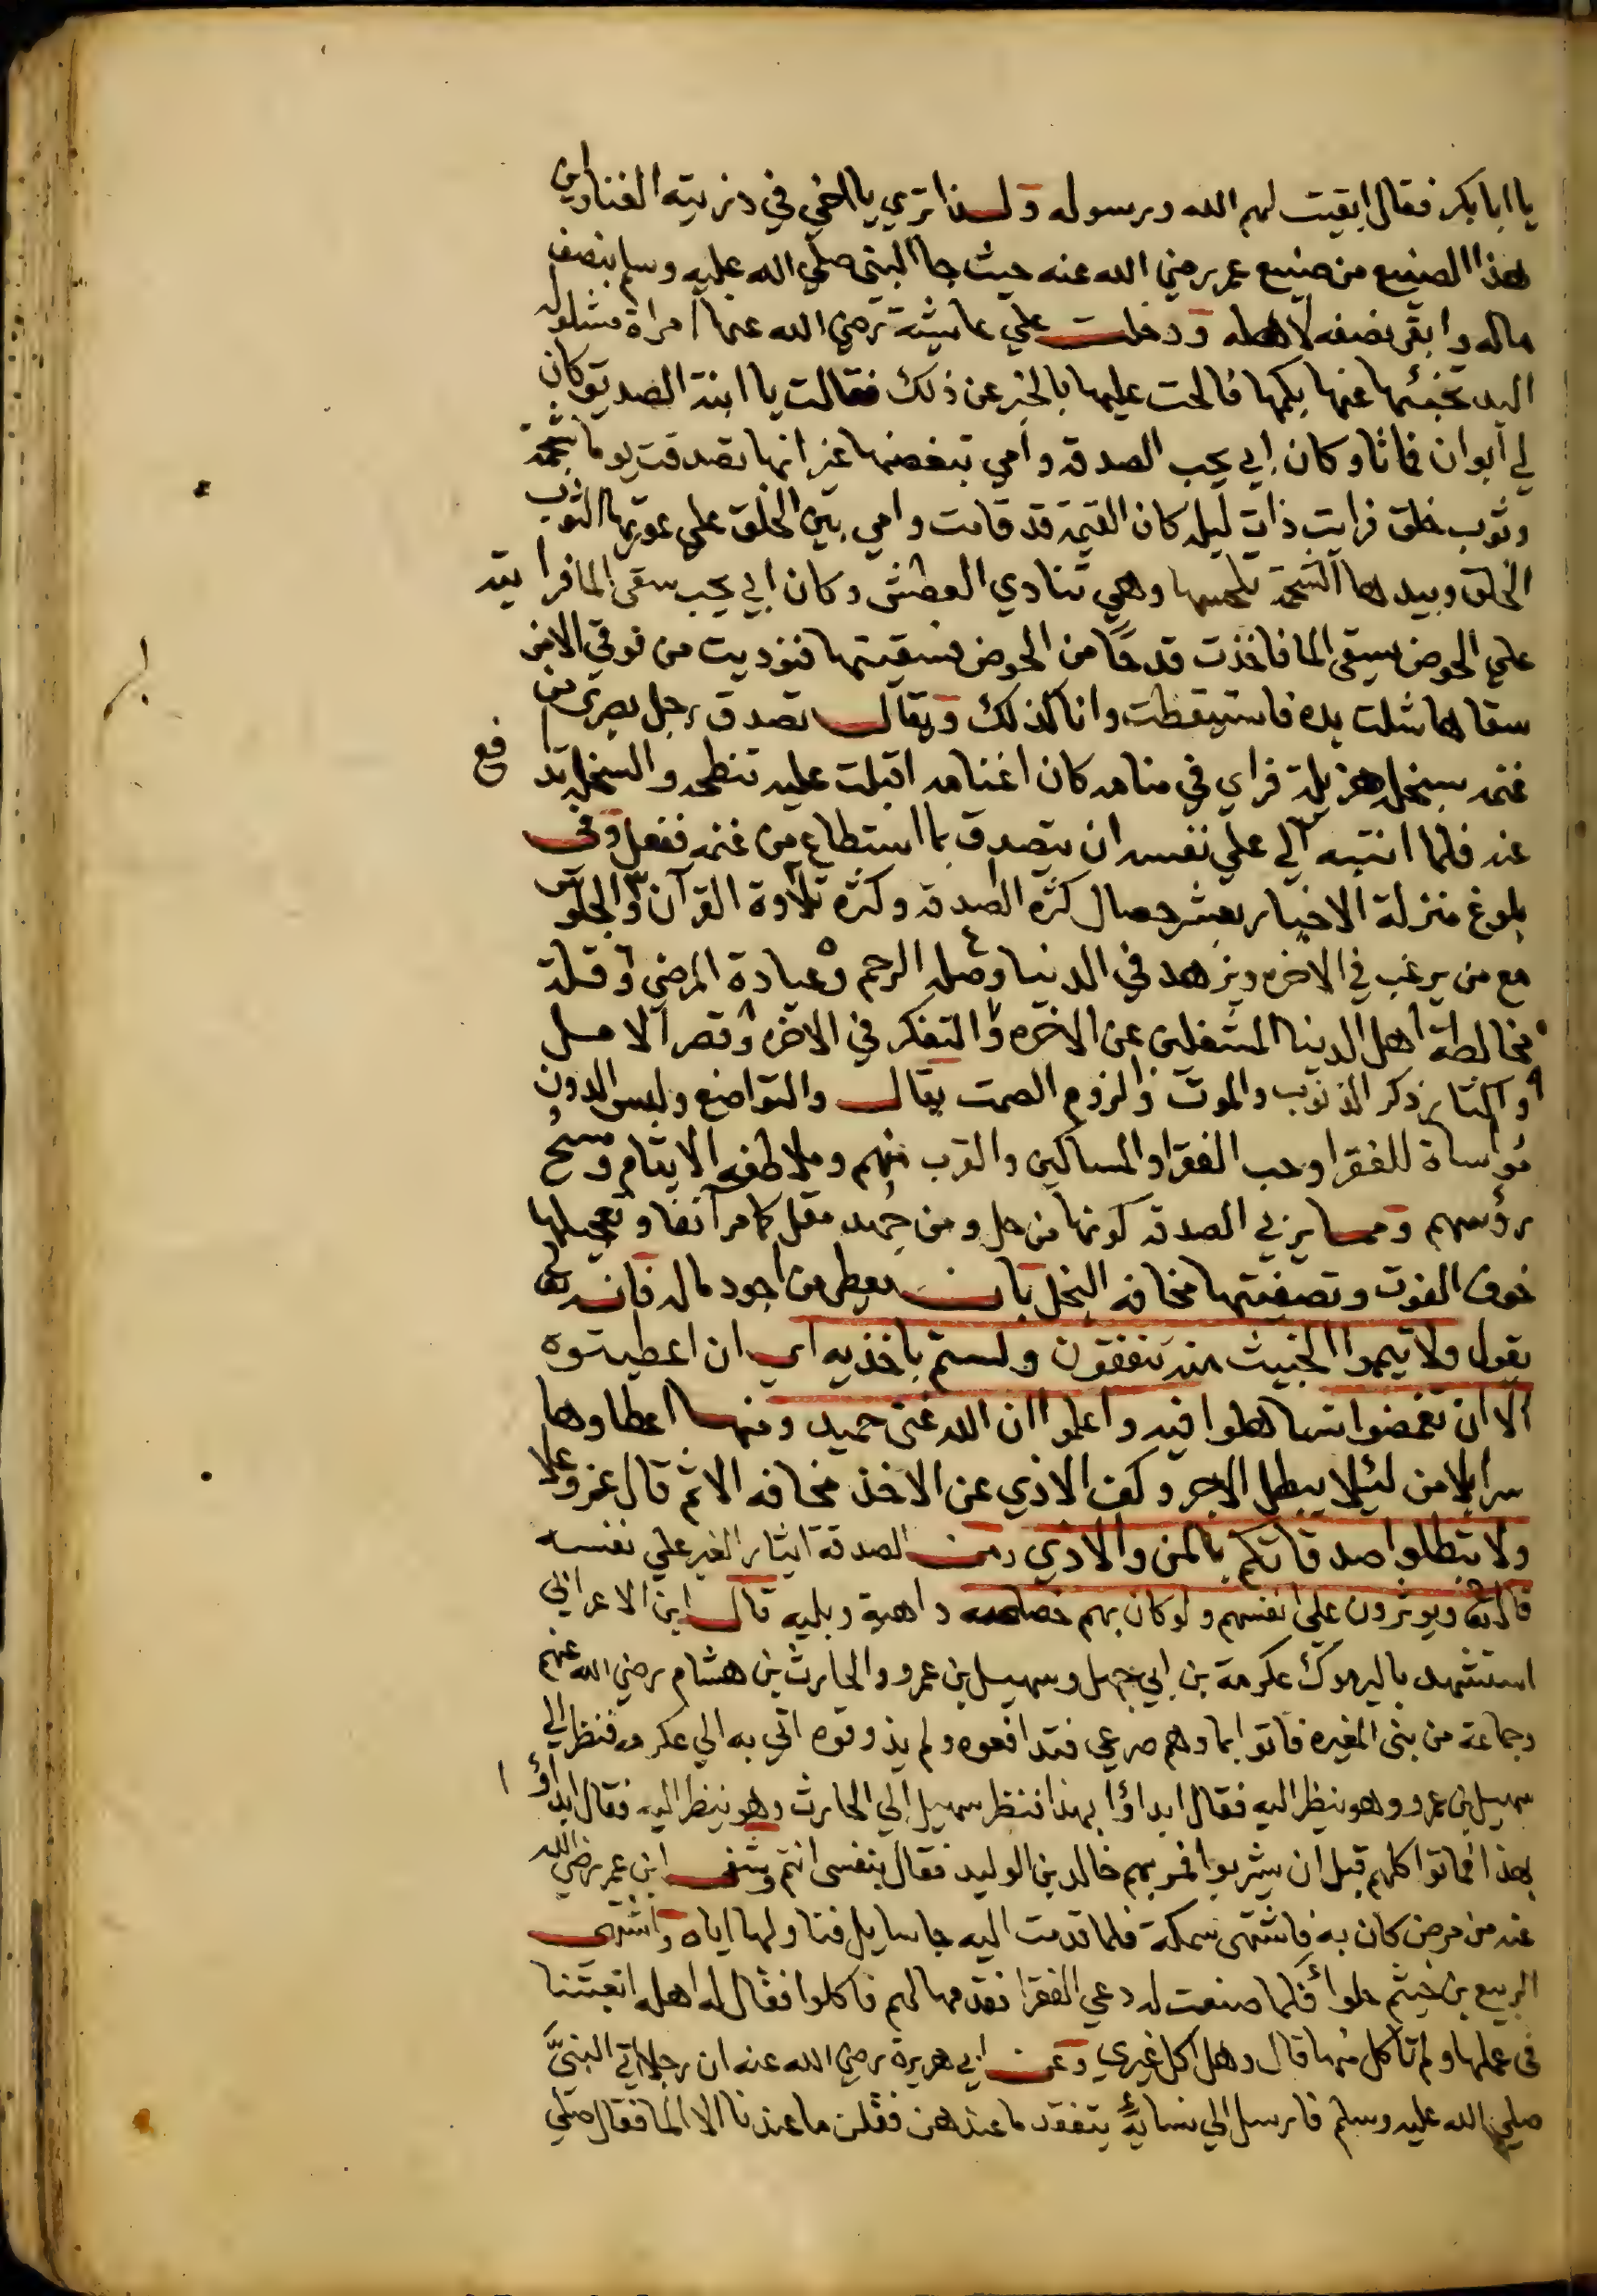 يا ابا بكر فقال ابقيت لهم الله ورسوله ولهذا ترى يا اخي في الفنا واين
هذا الصنيع من صنيع عمر رضي الله عنه حيث جا النبى صلي الله عليه وسلم بنصف
ماله وابقى نصفه لاهله ودخلت علي عايشة رضي الله عنها امراة مشلوله
اليد تخبئها عنها بكمها فالحت عليها بالخبر عن ذلك فقالت يا ابنة الصديق كان
لي ابوان فماتا وكان ابي يحب الصدقه وامي تبغضها غير انها تصدقت يوما بشحمة
وثوب خلق فرايت ذات ليله كان القيمة قد قامت وامي بين الخلق علي عورتها الثوب
الخلق وبيدها الشحمة تلحسها وهي تنادي العطش وكان ابي يحب سقى الما فرايته
علي الحوض يسقى الما فاخذت قدحًا من الحوض فسقيتها فنوديت من فوقي الا من
سقاها شلت يده فاستيقظت وانا كذلك ويقال تصدق رجل بصرى من
غنمه بسخله هزيلة فراي في منامه كان اغنامه اقبلت عليه تنطحه والسخله تدا
فع
عنه فلما انتبه الى علي نفسه ان يتصدق بما استطاع من غنمه ففعل وفى
بلوغ منزلة الاخيار بعشر خصال كثرة الصدقه وكثرة تلاوة القرآن ٣ والجلوس
مع من يرغب في الاخره ويزهد في الدنيا ٤ وصلة الرحم ٥ وعيادة المرضي ٦ وقلة
مخالطة اهل الدنيا المشتغلين عن الاخره ٧ والتفكر في الاخره ٨ وقصر الامل
٩ واكثار ذكر الذنوب والموت ولزوم الصمت يقال والتواضع ولبس الدون
مواساة للفقرا وحب الفقرا والمساكين والقرب منهم وملاطفه الايتام ومسح
رؤسهم ومما يزيى الصدقه كونها من حل ومن جُهد مقل كما مر آنفا وتعجيلها
خوف الفوت وتصفيتها مخافه البخل بان يعطى من اجود ماله فان الله تعالى
يقول ولا تيمموا الخبيث منه تنفقون ولستم باخذيه اي ان اعطيتموه
الا ان تغمضوا تتساهلوا فيه واعلموا ان الله غنى حميد ومنها اعطاوها
سرا بلا من لئيلا يبطل الاجر وكف الاذي عن الاخذ مخافه الاثم قال عز وعلا
ولا تبطلوا صدقاتكم بالمن والاذي ومن الصدقة ايثار الغير علي نفسه
قال تعالى ويوثرون على انفسهم ولو كان بهم خصاصه داهية وبليه قال ابن الاعرابي
استشهد باليرموك عكرمة بن ابي جهل وسهيل بن عمرو والحارث بن هشام رضي الله عنهم
وجماعة من بنى المغيره فاتوا بما وهم صرعي فتدافعوه ولم يذوقوه اتي به الي عكرمه فنظر الي
سهيل بن عمرو وهو ينظر اليه فقال ابداؤا بهذا فنظر سهيل الي الحارث وهو ينظر اليه فقال ابداؤا
بهذا فماتوا كلهم قبل ان يشربوا فمر بهم خالد بن الوليد فقال بنفسى انتم وشفى ابن عمر رضي الله
عنه من مرض كان به فاشتهى سمكة فلما قدمت اليه جا سايل فناولها اياه واشتهى
الربيع بن خيثم حلوا فلما صنعت له دعي الفقرا فقدمها لهم فاكلوا فقال له اهله اتعبتنا
في عملها ولم تاكل منها قال وهل اكل غيري وعن ابي هريرة رضي الله عنه ان رجلا اتي النبيَّ
صلي الله عليه وسلم فارسل الي نسايه يتفقد ما عندهن فقلن ما عندنا الا الما فقال صلي